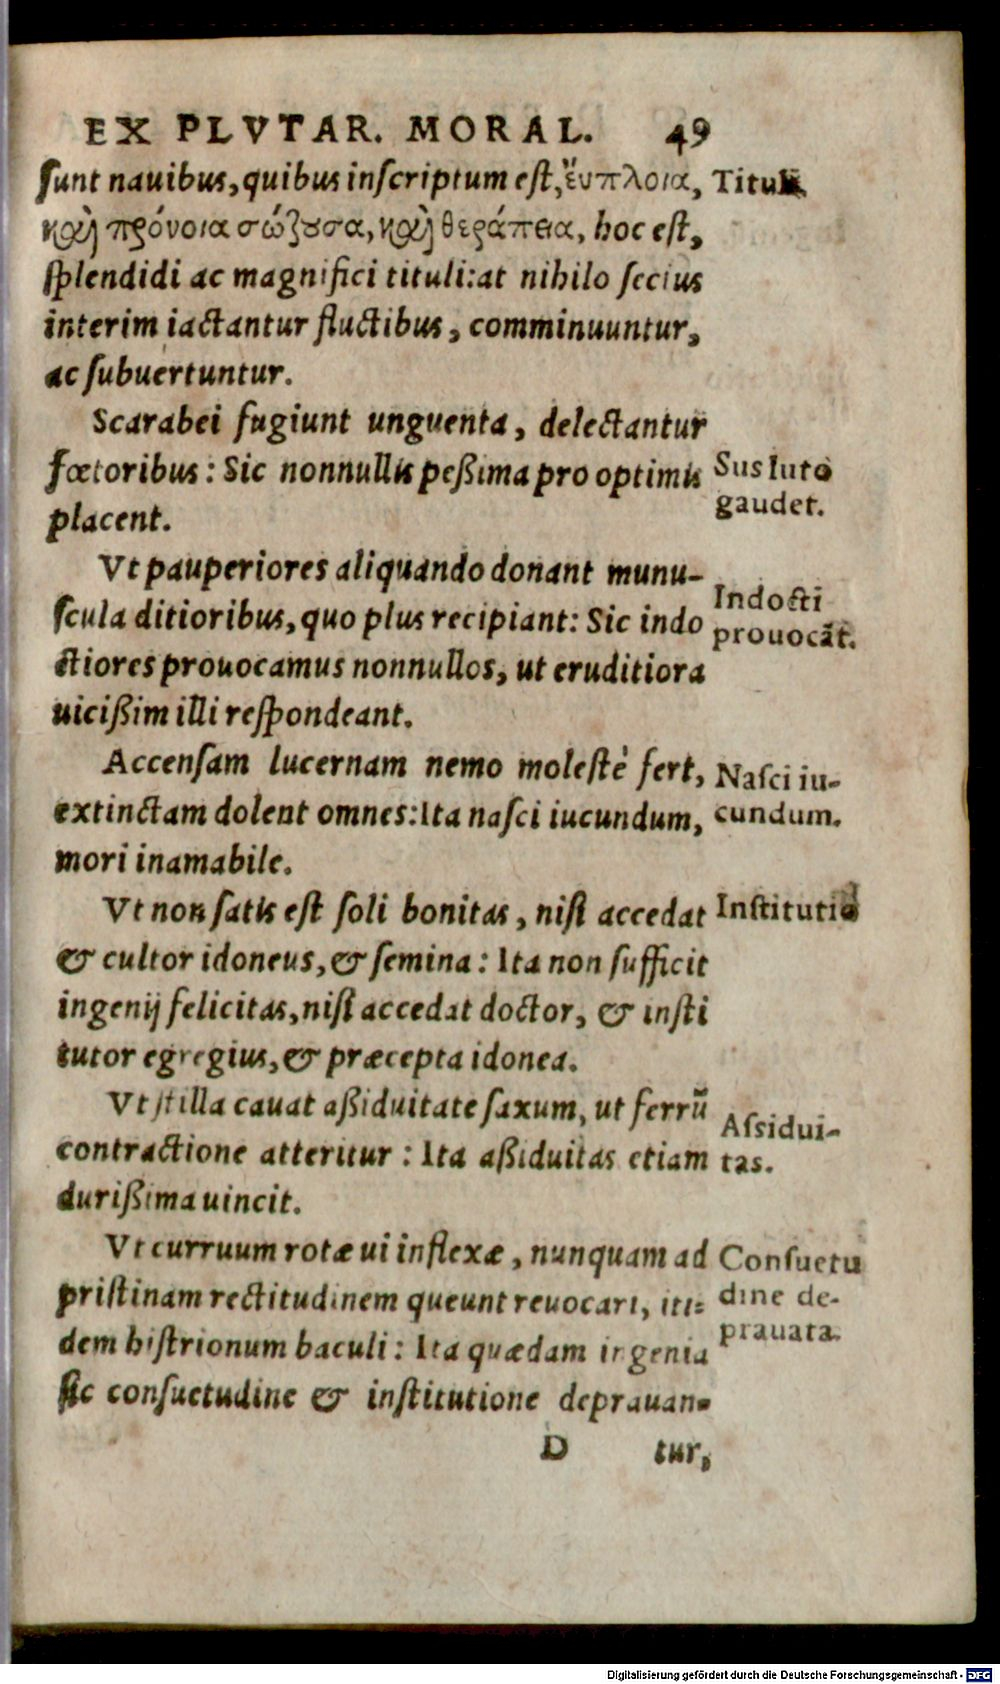 EX PLVTAR. MORAL. 49
ſunt nauibus, quibus inſcriptum eſt, ἔυπλοια, Tituli.
καὶ πρόνοια σώζουσα, καὶ θεράπεια, hoc eſt,
ſplendidi ac magnifici tituli: at nihilo ſecius
interim iactantur fluctibus, comminuuntur,
ac ſubuertuntur.
Scarabei fugiunt unguenta, delectantur
fœtoribus: Sic nonnullis peßima pro optimis
placent.
Sus luto
gaudet.
Vt pauperiores aliquando donant munu-
ſcula ditioribus, quo plus recipiant: Sic indo
ctiores prouocamus nonnullos, ut eruditiora
uicißim illi reſpondeant.
Indocti
prouocāt.
Accenſam lucernam nemo moleſtè fert,
extinctam dolent omnes: Ita naſci iucundum,
mori inamabile.
Naſci iu-
cundum.
Vt non ſatis eſt ſoli bonitas, niſi accedat
& cultor idoneus, & ſemina: Ita non ſufficit
ingenij felicitas, niſi accedat doctor, & inſti
tutor egregius, & præcepta idonea.
Inſtitutio
Vt ſtilla cauat aßiduitate ſaxum, ut ferrū
contractione atteritur: Ita aßiduitas etiam
durißima uincit.
Aſsidui-
tas.
Vt curruum rotæ ui inflexæ, nunquam ad
priſtinam rectitudinem queunt reuocari, iti-
dem hiſtrionum baculi: Ita quædam ingenia
ſic conſuetudine & inſtitutione deprauan-
Conſuetu
dine de-
prauata.
D tur,
Digitalisierung gefördert durch die Deutsche Forschungsgemeinschaft - DFG